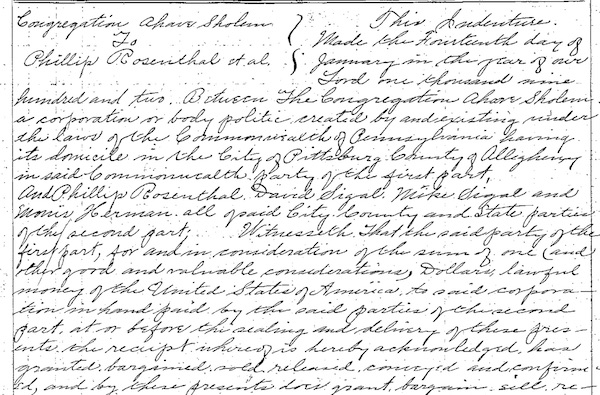 Congregation Ahave Sholem
To
Phillip Rosenthal et al.
This Indenture.
Made the Fourteenth day of
January in the year of our
Lord one thousand nine
hundred and two. Between The Congregation Ahave Sholem
a corporation or body politic, created by and existing under
the laws of the Commonwealth of Pennsylvania having
its domicile in the City of Pittsburg County of Allegheny
in said Commonwealth party of the first part,
And Phillip Rosenthal. David Sigal. Mike Sigal and
Morris Herman. all of said City County and State parties
of the second part; Witnesseth, That the said party of the
first part, for and in consideration of the sum of one (and
other good and valuable considerations) Dollars, lawful
money of the United States of America, to said corpora-
tion in hand paid by the said parties of the second
part, at or before the sealing and delivery of these pres-
ents, the receipt whereof is hereby acknowledged, has
granted, bargained, sold, released, conveyed and confirm-
ed, and by these presents does grant, bargain, sell, re-